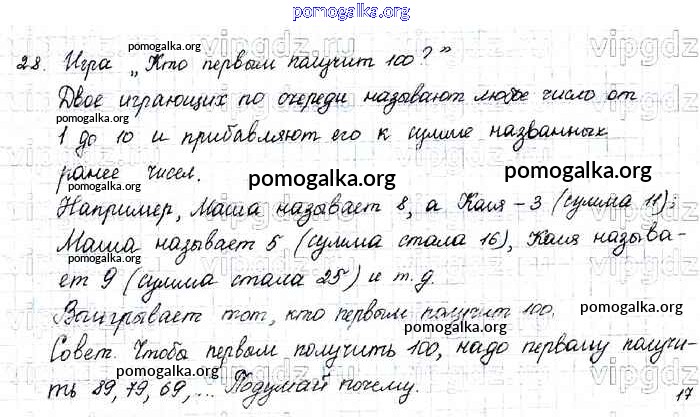 pomogalka.org
28. Игра „Кто первым получит 100?"
pomogalka.org
Двое играющих по очереди называют любое число от
pomogalka.org
1 до 10 и прибавляют его к сумме названных
ранее чисел.
pomogalka.org pomogalka.org
pomogalka.org
Например, Маша называет 8, а Катя – 3 (сумма 11);
Маша называет 5 (сумма стала 16), Катя называ-
ет 9 (сумма стала 25) и т. д.
Выигрывает тот, кто первым получит 100.
pomogalka.org
pomogalka.org
Совет. Чтобы первым получить 100, надо первому получи-
ть 89, 79, 69, ... Подумай почему.
pomogalka.org
17
vipgdz.ru